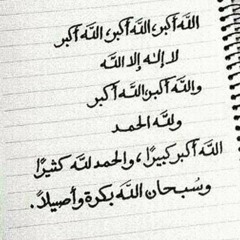 الله أكبر، الله أكبر، الله أكبر
لا إله إلا الله
والله أكبر، الله أكبر
ولله الحمد
الله أكبر كبيرًا، والحمد لله كثيرًا
وسُبحان الله بكرة وأصيلاً.